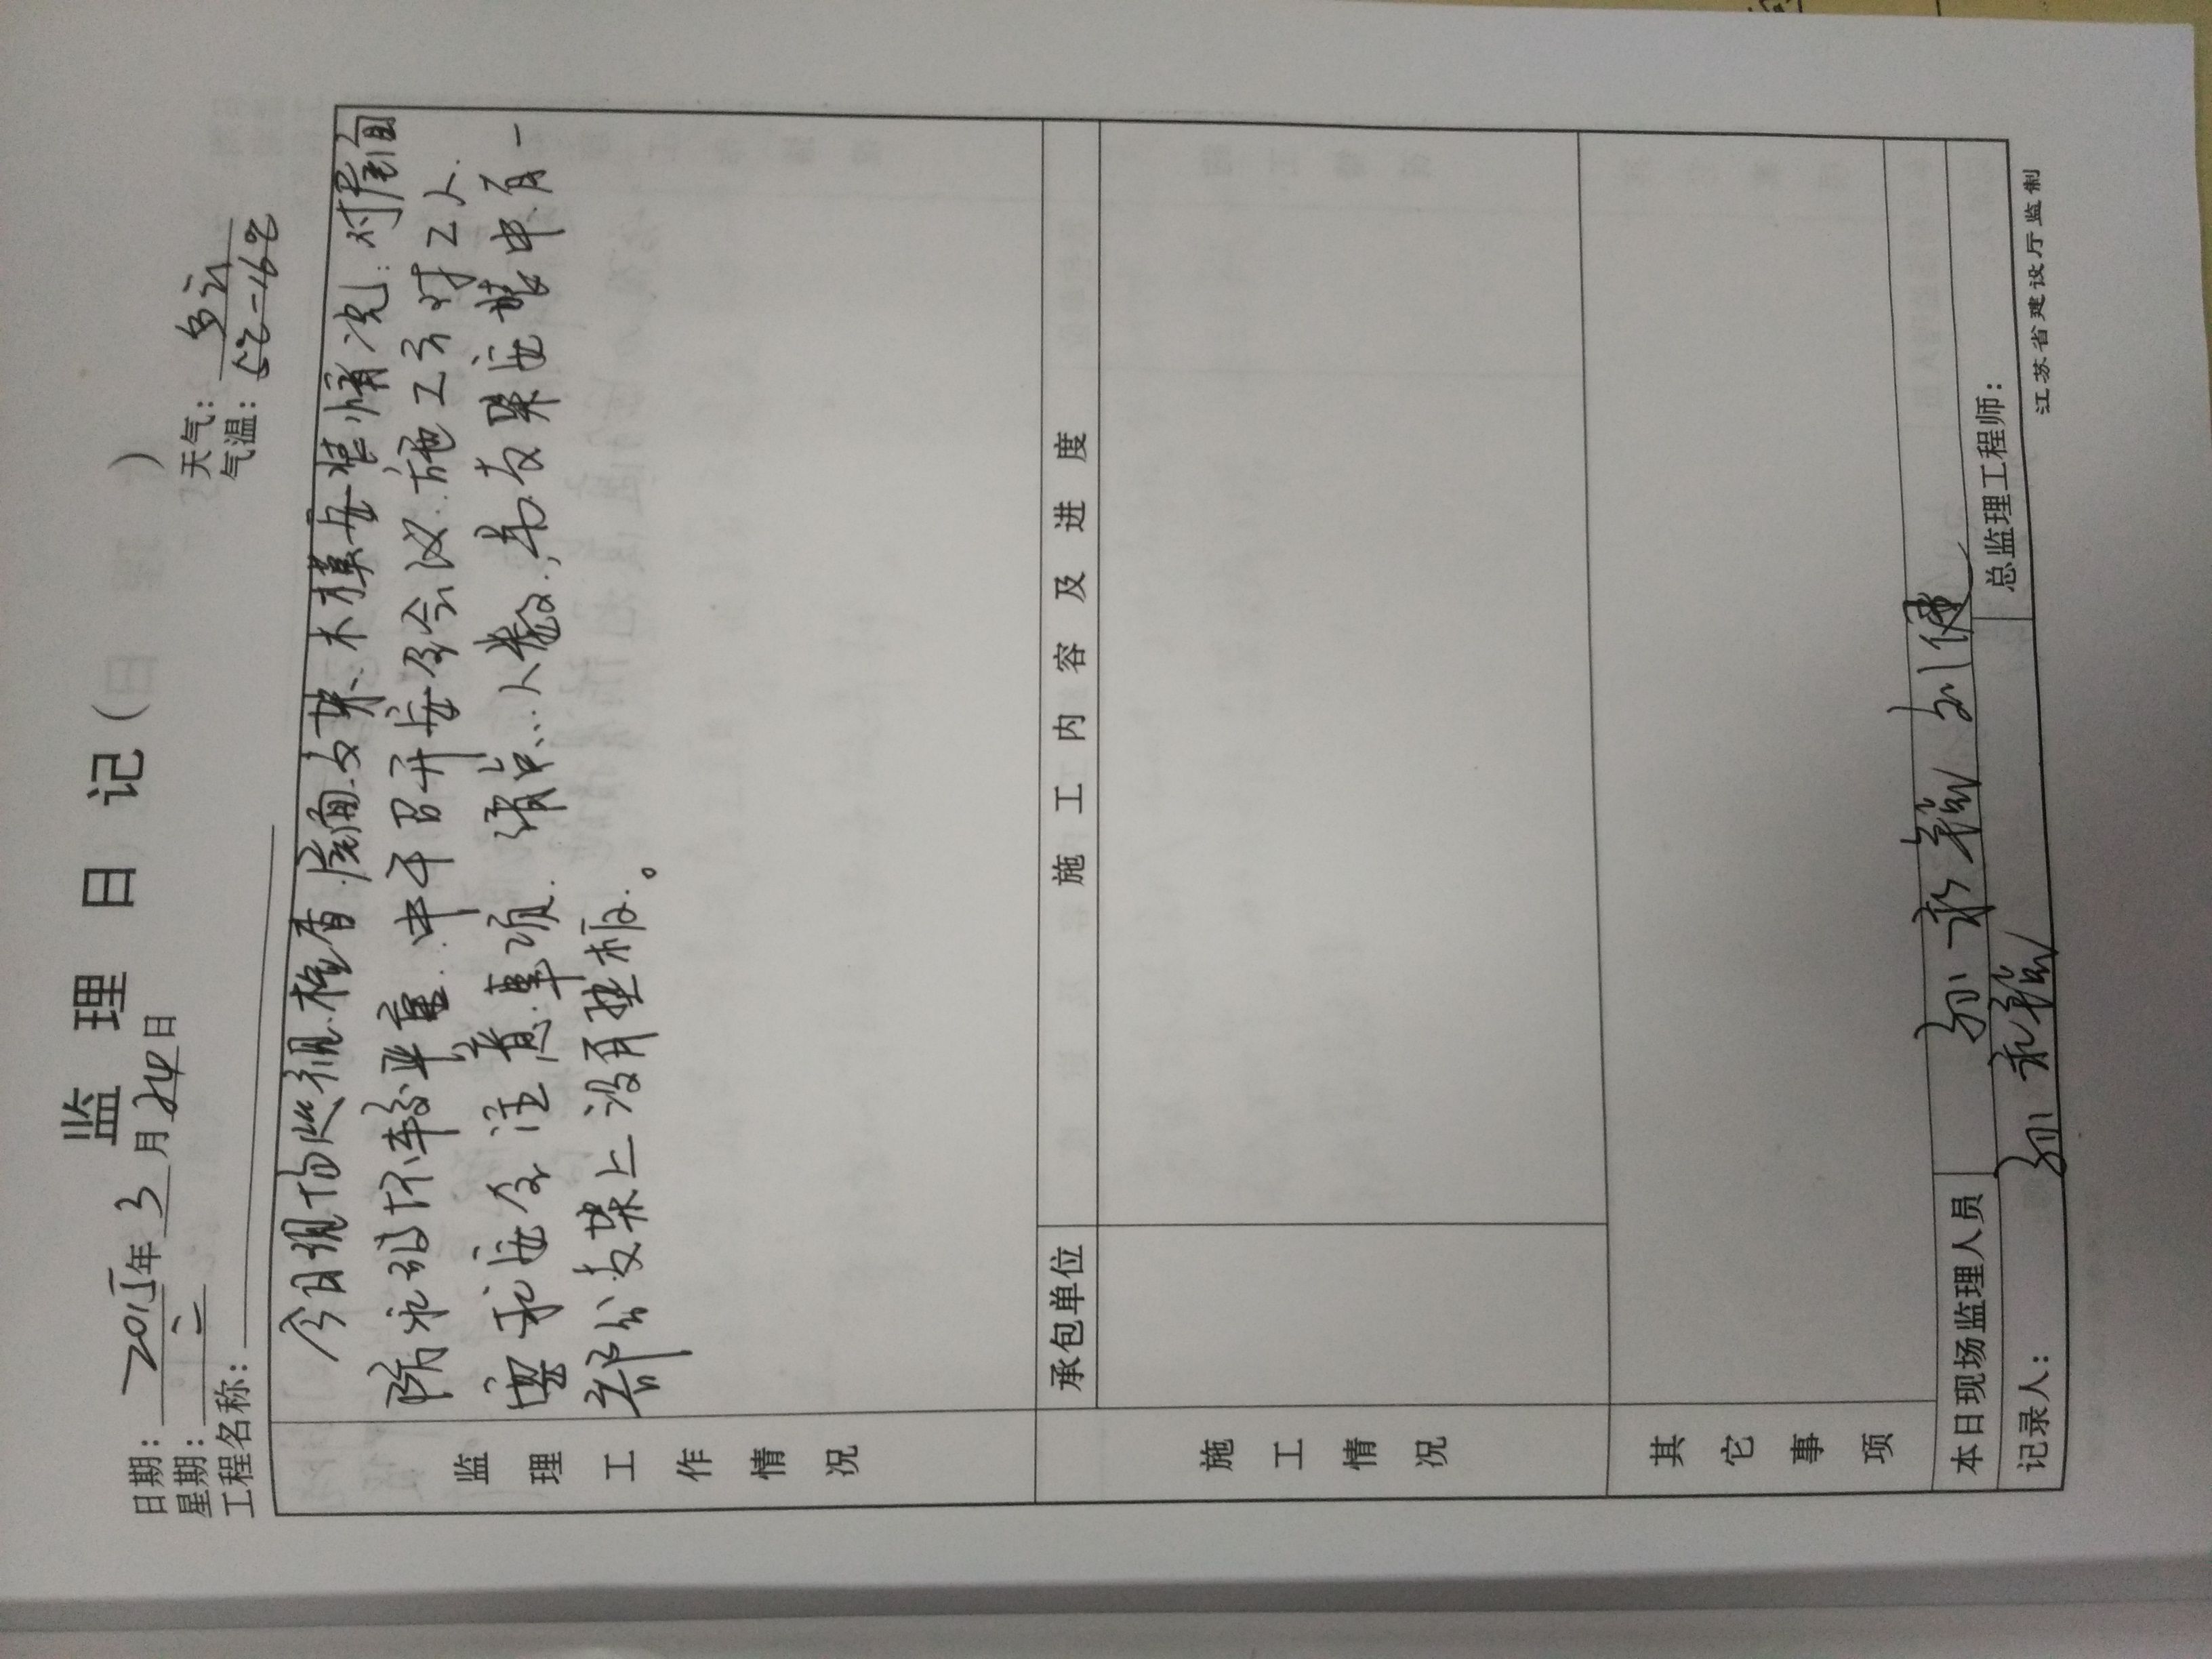 监理日记
日期：2015年3月24日 天气：多云
星期：二 气温：5℃-16℃
工程名称：
监理工作情况
今日现场巡视.检查.屋面支架.木模安装情况.对屋面
防水破坏较严重.中午召开安全会议.施工方对工人.
要求安全注意事项. 清点…人数.,为支架安装中.有一
部分支架上没有垫板.。
施工情况
承包单位 施工内容及进度
其它事项
本日现场监理人员 孙
记录人：孙 总监理工程师：
江苏省建设厅监制